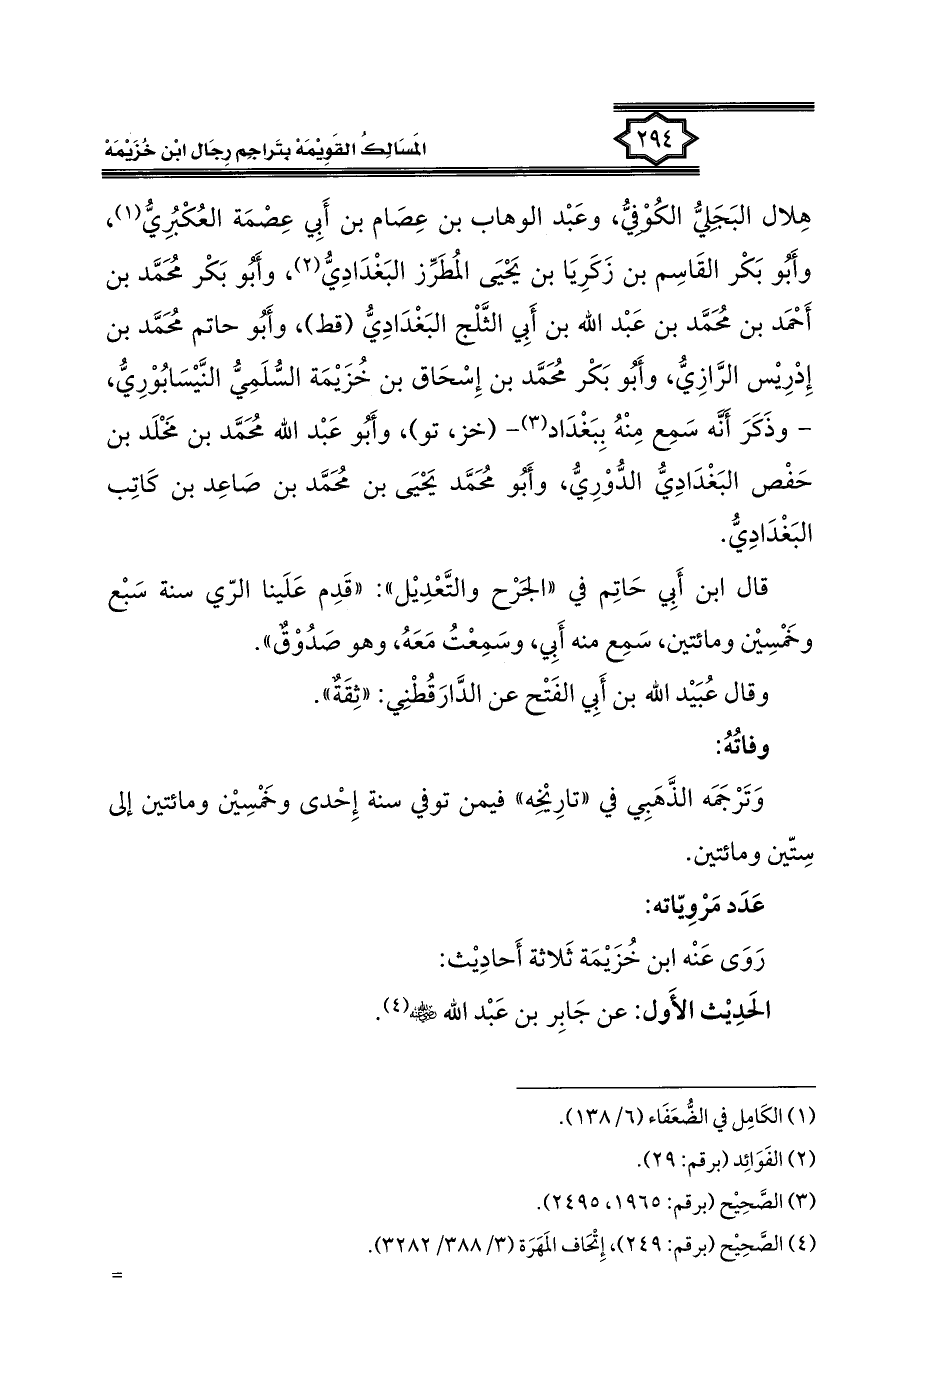 المَسَالِكُ القَوِيْمَة بتَراجِم رِجَال ابْن خُزَيْمَة
٢٩٤
هِلال البَجَلِيُّ الكُوْفِيُّ، وعَبْد الوهاب بن عِصَام بن أَبِي عِصْمَة العُكْبُرِيُّ(١)،
وأَبُو بَكْر القَاسِم بن زَكَرِيَا بن يَحْيَى المُطَرِّز البَغْدَادِيُّ(٢)، وأَبُو بَكْر مُحَمَّد بن
أَحْمَد بن مُحَمَّد بن عَبْد الله بن أَبِي الثَّلْج البَغْدَادِيُّ (قط)، وأَبُو حاتم مُحَمَّد بن
إِدْرِيْس الرَّازِيُّ، وأَبُو بَكْر مُحَمَّد بن إِسْحَاق بن خُزَيْمَة السُّلَمِيُّ النَّيْسَابُوْرِيُّ،
- وذَكَرَ أَنَّه سَمِع مِنْهُ بِبَغْدَاد(٣)- (خز، تو)، وأَبُو عَبْد الله مُحَمَّد بن مَخْلَد بن
حَفْص البَغْدَادِيُّ الدُّوْرِيُّ، وأَبُو مُحَمَّد يَحْيَى بن مُحَمَّد بن صَاعِد بن كَاتِب
البَغْدَادِيُّ.
قال ابن أَبِي حَاتِم في «الجَرْح والتَّعْدِيْل»: «قَدِم عَلَينا الرّي سنة سَبْع
وخَمْسِيْن ومائتين، سَمِع منه أَبي، وسَمِعْتُ مَعَهُ، وهو صَدُوْقٌ».
وقال عُبَيْد الله بن أَبِي الفَتْح عن الدَّارَقُطْنِي: «ثِقَةٌ».
وفاتُهُ:
وَتَرْجَمَه الذَّهَبِي في «تارِيْخِه» فيمن توفي سنة إِحْدى وخَمْسِيْن ومائتين إلى
سِتّين ومائتين.
عَدَد مَرْوِيّاته:
رَوَى عَنْه ابن خُزَيْمَة ثَلاثة أَحادِيْث:
الحَدِيْث الأَول: عن جَابِر بن عَبْد الله ﵁(٤).
(١) الكَامِل في الضُّعَفَاء (٦/ ١٣٨).
(٢) الفَوَائِد (برقم: ٢٩).
(٣) الصَّحِيْح (برقم: ١٩٦٥، ٢٤٩٥).
(٤) الصَّحِيْح (برقم: ٢٤٩)، إِتْحَاف المَهَرَة (٣/ ٣٨٨/ ٣٢٨٢).
=